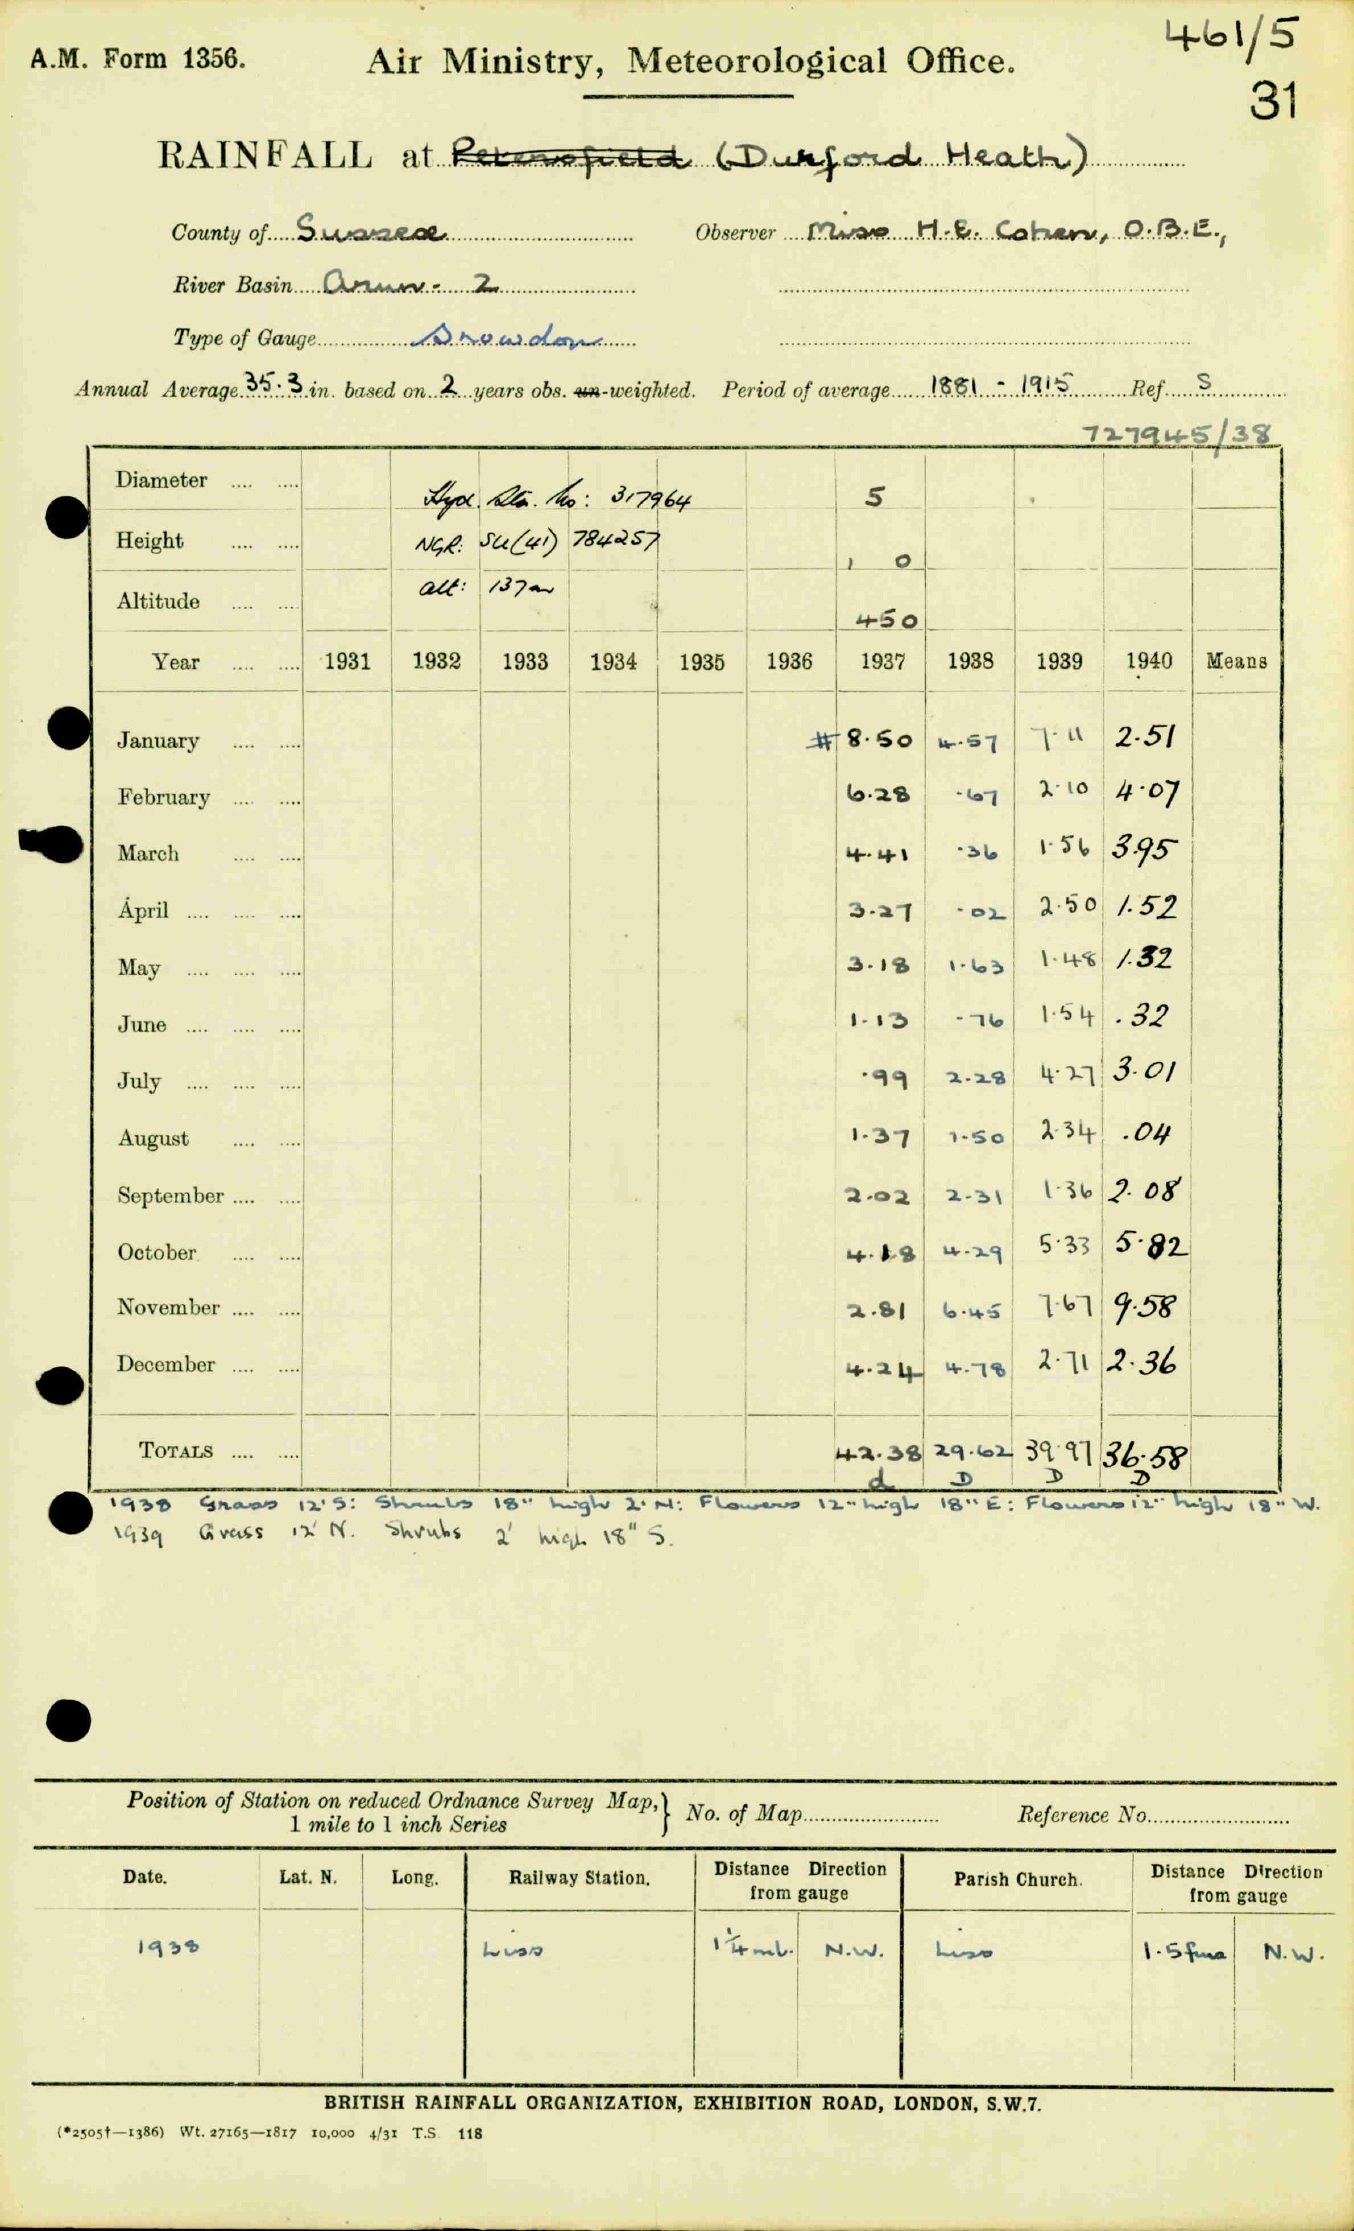 461/5
A.M. Form 1356. Air Ministry, Meteorological Office.
31
RAINFALL at Petersfield (Durford Heath)
County of Sussex Observer Miss H.E. Cohen, O.B.E.,
River Basin Arun - 2
Type of Gauge Snowdon
Annual Average 35.3 in. based on 2 years obs. un-weighted. Period of average 1881 - 1915 Ref. S
727945/38
Diameter .... .... Hyd. Stn. No: 317964 5
Height .... .... NGR: SU(41) 784257 1 0
Altitude .... .... alt: 137m 450
Year .... .... 1931 1932 1933 1934 1935 1936 1937 1938 1939 1940 Means
January .... .... # 8.50 4.57 7.11 2.51
February .... .... 6.28 .67 2.10 4.07
March .... .... 4.41 .36 1.56 3.95
April .... .... .... 3.27 .02 2.50 1.52
May .... .... .... 3.18 1.63 1.48 1.32
June .... .... .... 1.13 .76 1.54 .32
July .... .... .... .99 2.28 4.27 3.01
August .... .... 1.37 1.50 2.34 .04
September .... .... 2.02 2.31 1.36 2.08
October .... .... 4.18 4.29 5.33 5.82
November .... .... 2.81 6.45 7.67 9.58
December .... .... 4.24 4.78 2.71 2.36
TOTALS .... .... 42.38 29.62 39.97 36.58
d D D D
1938 Grass 12' S: Shrubs 18" high 2' N: Flowers 12" high 18" E: Flowers 12" high 18" W.
1939 Grass 12' N. Shrubs 2' high 18" S.
Position of Station on reduced Ordnance Survey Map, 1 mile to 1 inch Series } No. of Map Reference No.
Date. Lat. N. Long. Railway Station. Distance Direction from gauge Parish Church. Distance Direction from gauge
1938 Liss 1¼ml. N.W. Liss 1.5 furs N.W.
BRITISH RAINFALL ORGANIZATION, EXHIBITION ROAD, LONDON, S.W.7.
(*2505†—1386) Wt. 27165—1817 10,000 4/31 T.S. 118